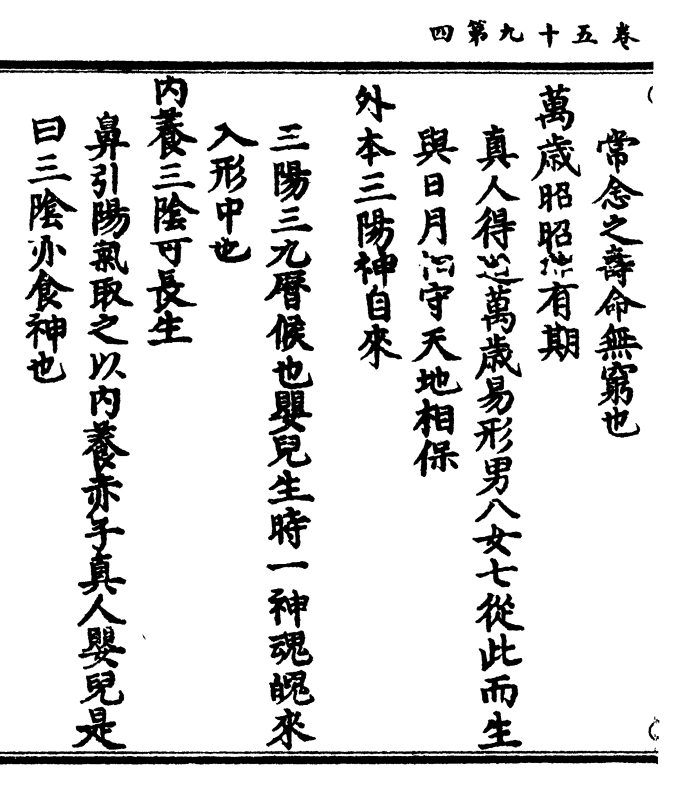 卷五十九第四
常念之壽命無窮也
萬歳昭昭有期
真人得萬歳易形男八女七從此而生
與日月守天地相保
外本三陽神自來
三陽三九曆候也嬰兒生時一神魂魄來
入形中也
内養三陰可長生
鼻引陽氣取之以内養赤子真人嬰兒是
曰三陰亦食神也